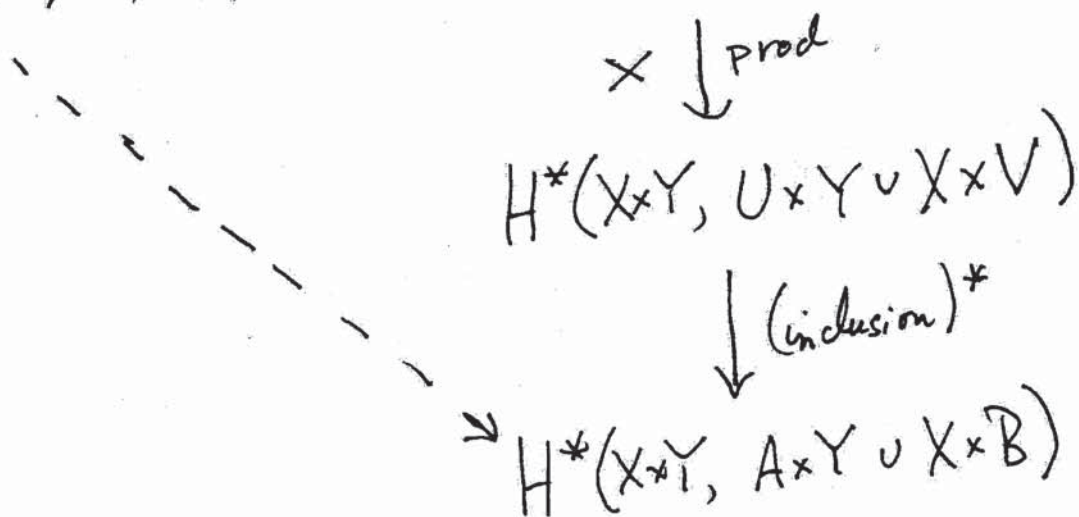 × ↓ prod
H*(X×Y, U×Y ∪ X×V)
↓ (inclusion)*
H*(X×Y, A×Y ∪ X×B)